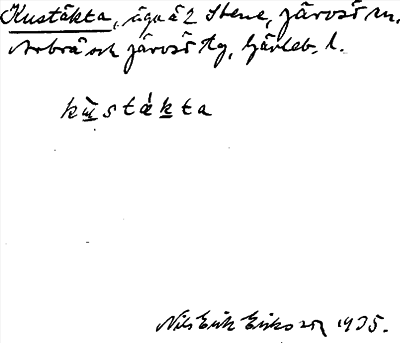 Kustäkta, äga å 2 Stene, Järvsö sn,
Arbrå och Järvsö tg, Gävleb. l.
kùstǽkta
Nils Erik Eriksson 1935.